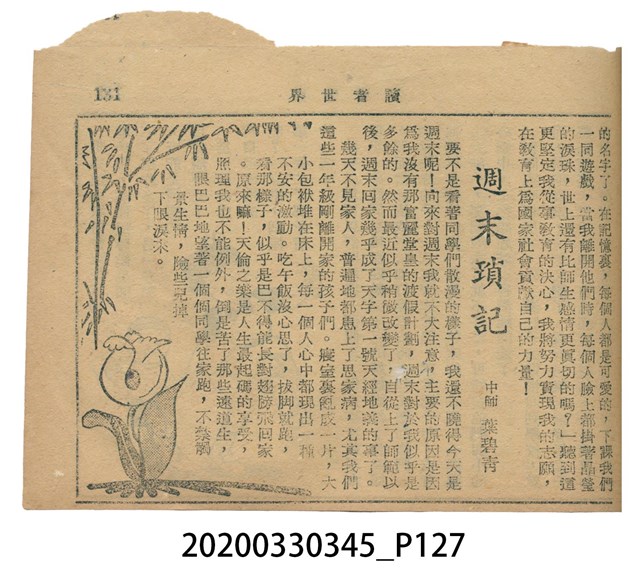 131
讀者世界
的名字了。在記憶裏，每個人都是可愛的，下課我們
一同遊戲，當我離開他們時，每個人臉上都掛著晶瑩
的淚珠，世上還有比師生感情更眞切的嗎？」聽到這
更堅定我從事敎育的決心，我將努力實現我的志願，
在敎育上爲國家社會貢獻自己的力量！
週末瑣記
中師 葉碧靑
要不是看著同學們散漫的樣子，我還不曉得今天是
週末呢！向來對週末我就不大注意，主要的原因是因
爲我沒有那富麗堂皇的渡假計劃，週末對於我似乎是
多餘的。然而最近似乎稍微改變了，自從上了師範以
後，週末回家幾乎成了天字第一號天經地義的事了。
幾天不見家人，普遍地都患上了思家病，尤其我們
這些一年級剛離開家的孩子們。寢室裏亂成一片，大
小包袱堆在床上，每一個人心中都現出一種
不安的激動。吃午飯沒心思了，拔脚就跑，
看那樣子，似乎是巴不得能長對翅膀飛回家
。原來嘛！天倫之樂是人生最起碼的享受，
照理我也不能例外，倒是苦了那些遠道生，
眼巴巴地望著一個個同學往家跑，不禁觸
景生情，險些兒掉
下眼淚來。
20200330345_P127